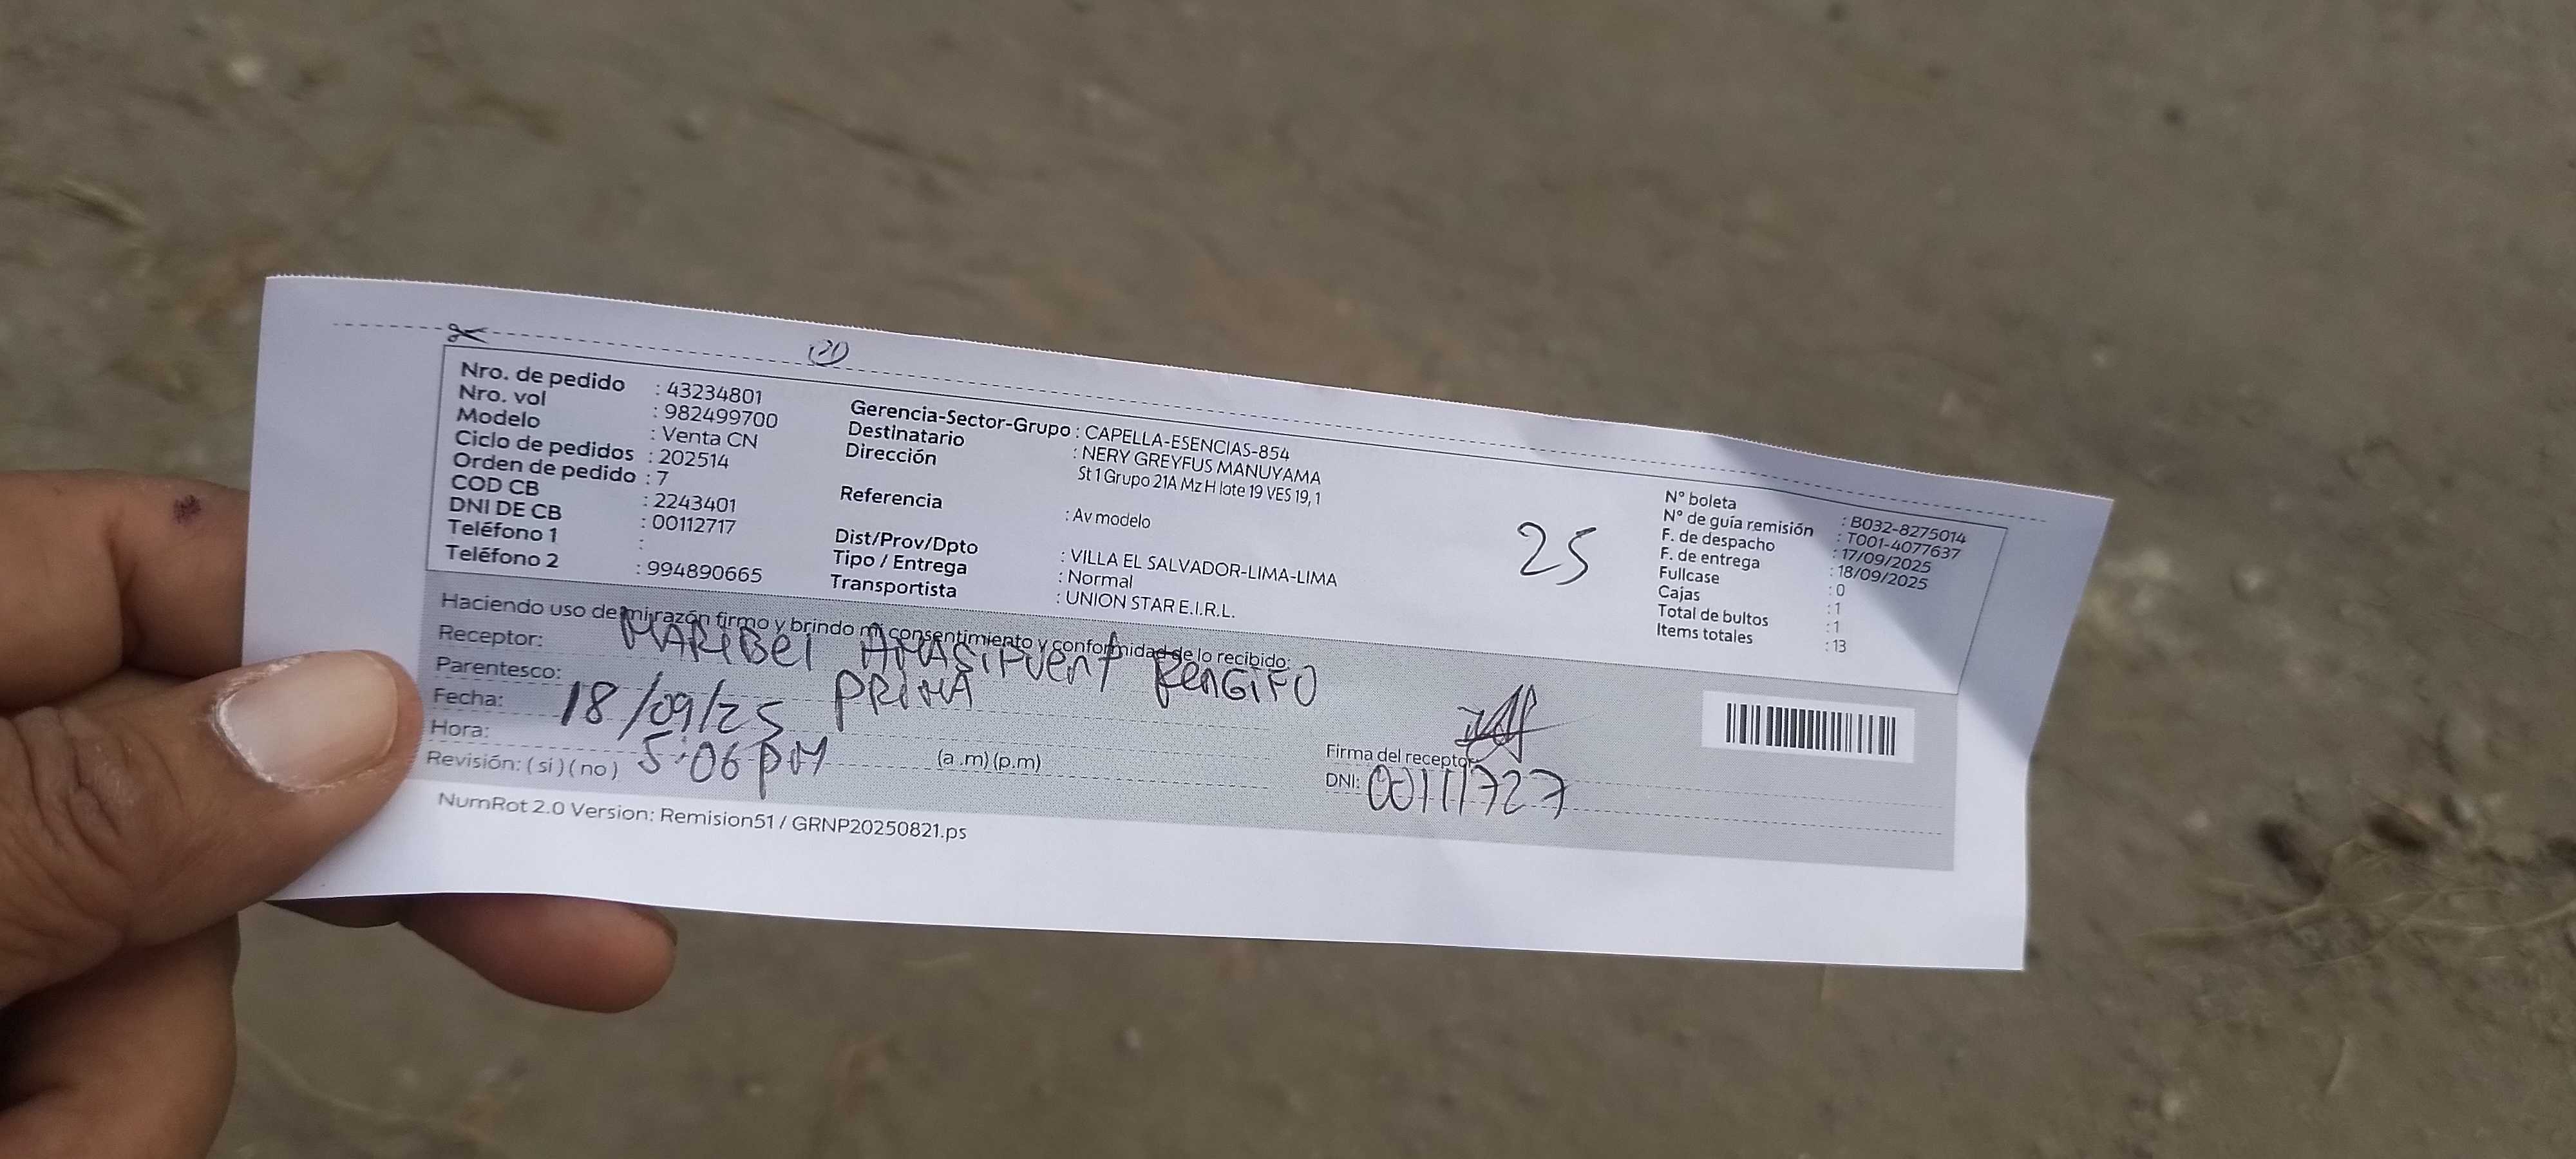 21
Nro. de pedido : 43234801
Nro. vol : 982499700
Modelo : Venta CN
Ciclo de pedidos : 202514
Orden de pedido : 7
COD CB : 2243401
DNI DE CB : 00112717
Teléfono 1 :
Teléfono 2 : 994890665
Gerencia-Sector-Grupo : CAPELLA-ESENCIAS-854
Destinatario : NERY GREYFUS MANUYAMA
Dirección St 1 Grupo 21A Mz H lote 19 VES 19, 1
Referencia : Av modelo
Dist/Prov/Dpto : VILLA EL SALVADOR-LIMA-LIMA
Tipo / Entrega : Normal
Transportista : UNION STAR E.I.R.L.
25
N° boleta : B032-8275014
N° de guía remisión : T001-4077637
F. de despacho : 17/09/2025
F. de entrega : 18/09/2025
Fullcase : 0
Cajas : 1
Total de bultos : 1
Items totales : 13
Haciendo uso de mi razón firmo y brindo mi consentimiento y conformidad de lo recibido:
Receptor: MARIBEL AMASIFUENT RENGIFO
Parentesco: PRIMA
Fecha: 18/09/25
Hora: 5:06 PM (a .m) (p.m)
Revisión: ( si ) ( no )
Firma del receptor:
DNI: 00111727
NumRot 2.0 Version: Remision51 / GRNP20250821.ps